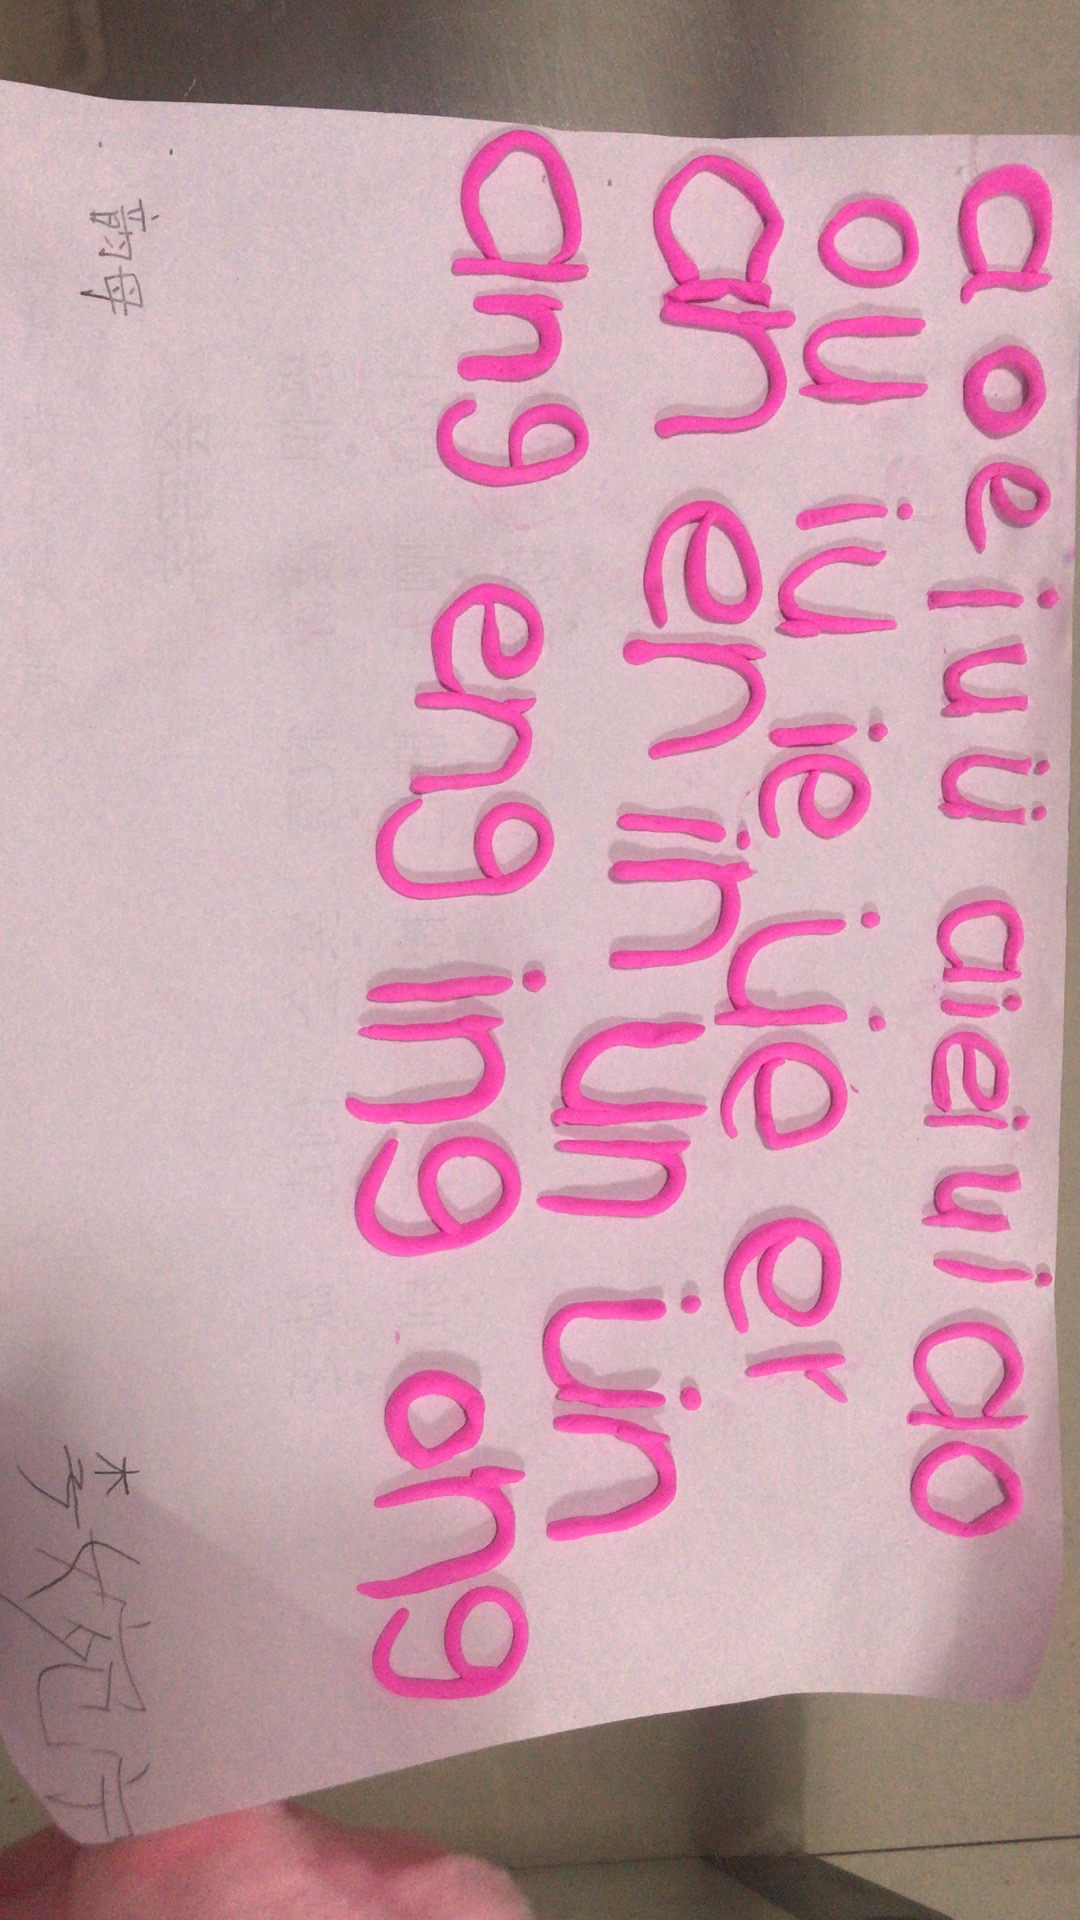 a o e i u ü ai ei ui ao
ou iu ie üe er
an en in un ün
ang eng ing ong
韵母
李婉宁